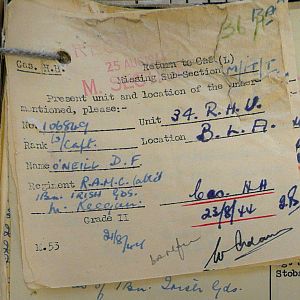 Cas. N.H.
Return to Cas. (L)
25 AUG
Missing Sub-Section
Present unit and location of the under
mentioned, please:-
No. 106869
Unit 34. R.H.U.
Rank T/Capt.
Location B.L.A.
Name O'NEILL D.F.
Regiment R.A.M.C. (att'd
1Bn. IRISH Gds.
Cas. N.H
23/8/44
Grade II
21/8/44
M.53
1Bn. Irish Gds.
Stobs